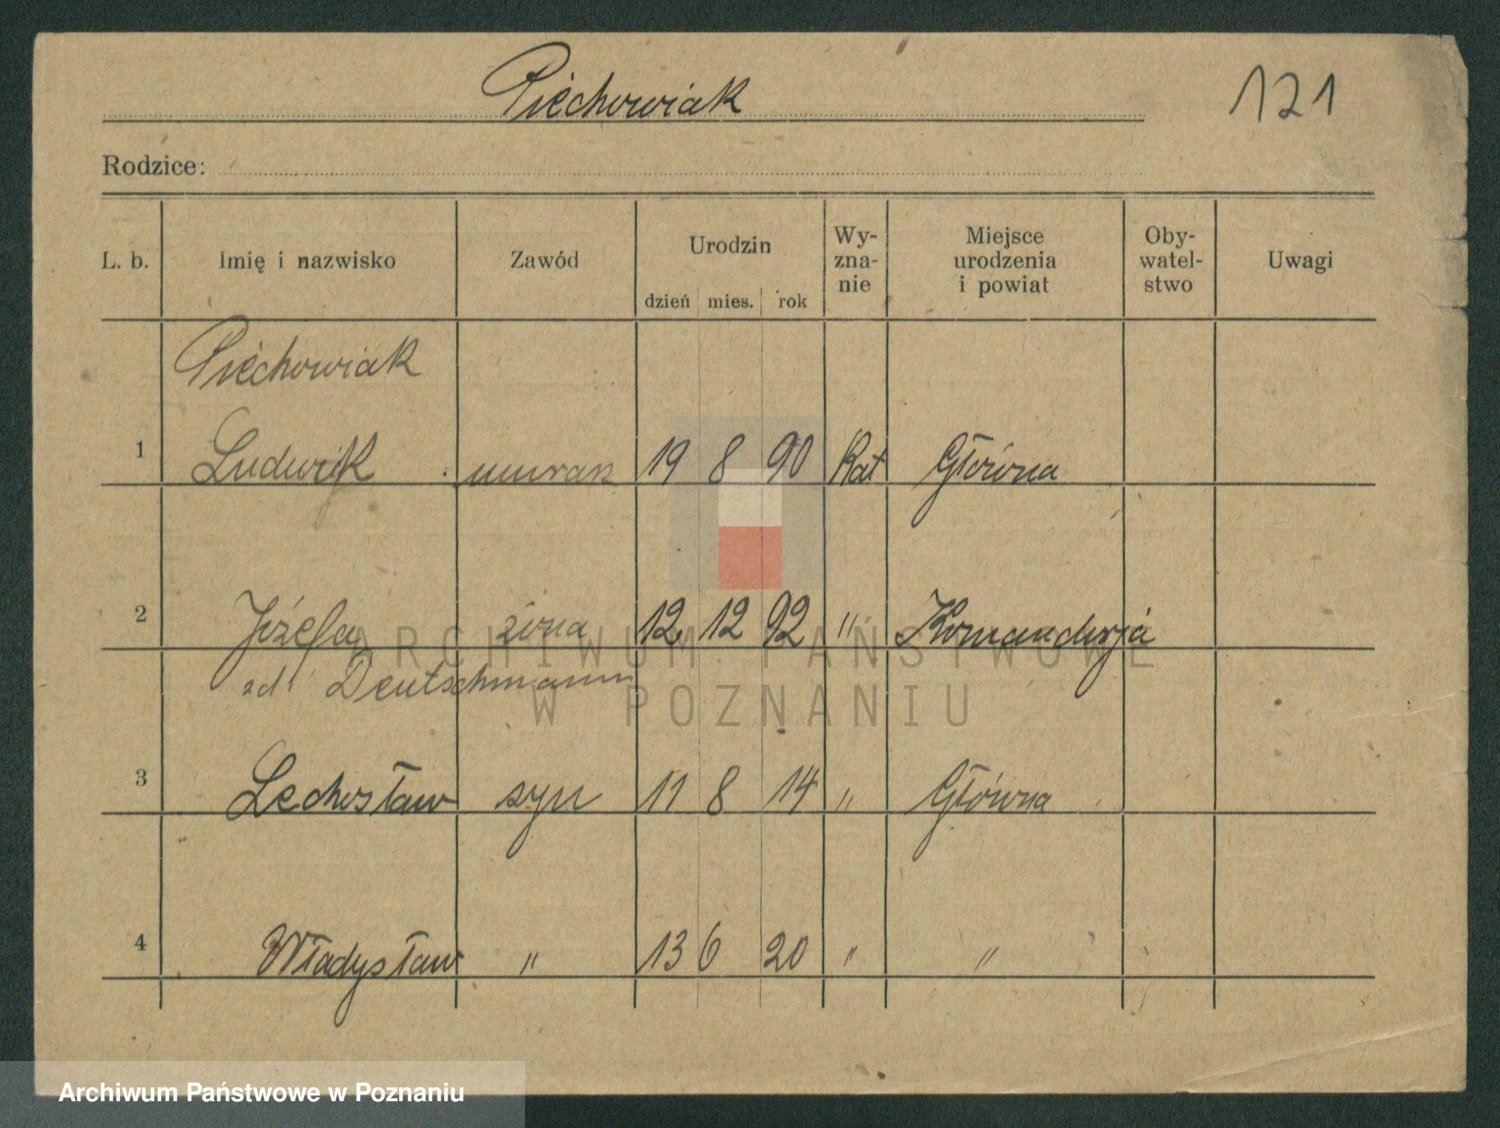 Piechowiak
121
Rodzice:
L. b. Imię i nazwisko Zawód Urodzin dzień mies. rok Wy-zna-nie Miejsce urodzenia i powiat Oby-watel-stwo Uwagi
Piechowiak
1 Ludwik murarz 19 8 90 Kat Główna
2 Józefa żona 12 12 92 " Komandorja
zd. Deutschmann
3 Lechosław syn 11 8 14 " Główna
4 Władysław " 13 6 20 " "
ARCHIWUM PAŃSTWOWE
W POZNANIU
Archiwum Państwowe w Poznaniu